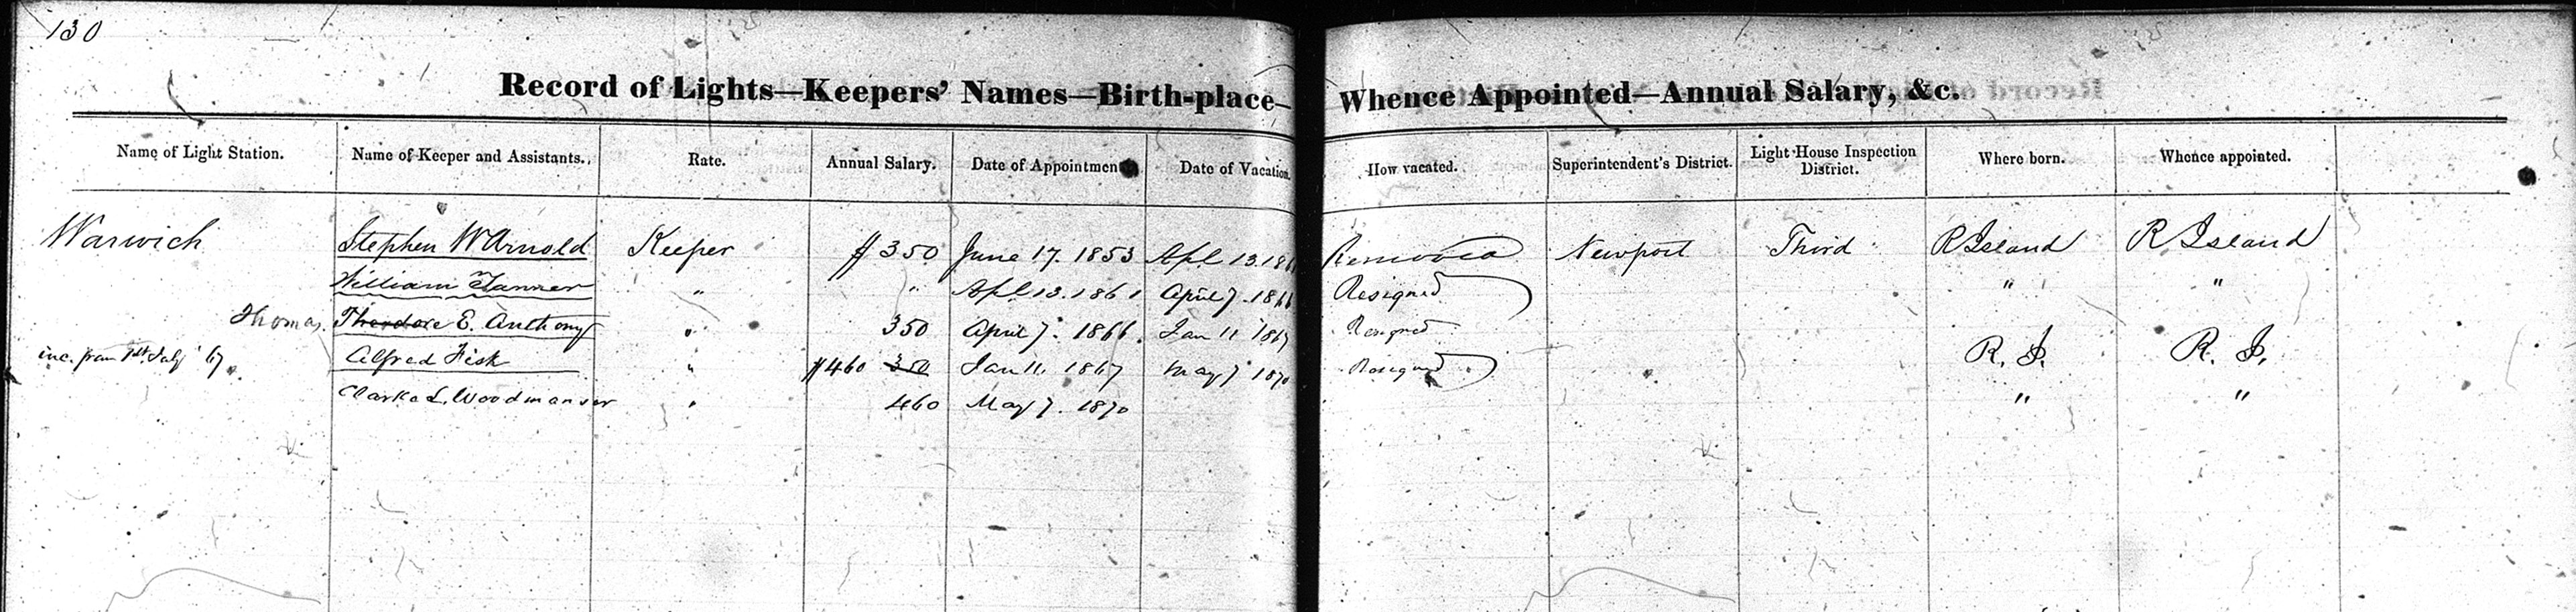 130
Record of Lights—Keepers' Names—Birth-place— Whence Appointed—Annual Salary, &c.
Name of Light Station. Name of Keeper and Assistants. Rate. Annual Salary. Date of Appointment Date of Vacation. How vacated. Superintendent's District. Light House Inspection District. Where born. Whence appointed.
Warwick Stephen W Arnold Keeper $350 June 17. 1853 Apl 13. 186 Removed Newport Third R Island R Island
William Tanner " " Apl 13. 1861 April 7. 1866 Resigned " "
Thomas. Theodore E. Anthony " 350 April 7. 1866. Jan 11 1867 Resigned
inc. from 1st July '67 Alfred Fisk " $460 350 Jan 11. 1867 May 7 1870 Resigned R. I. R. I.
Clarke L. Woodmanser " 460 May 7. 1870 " "